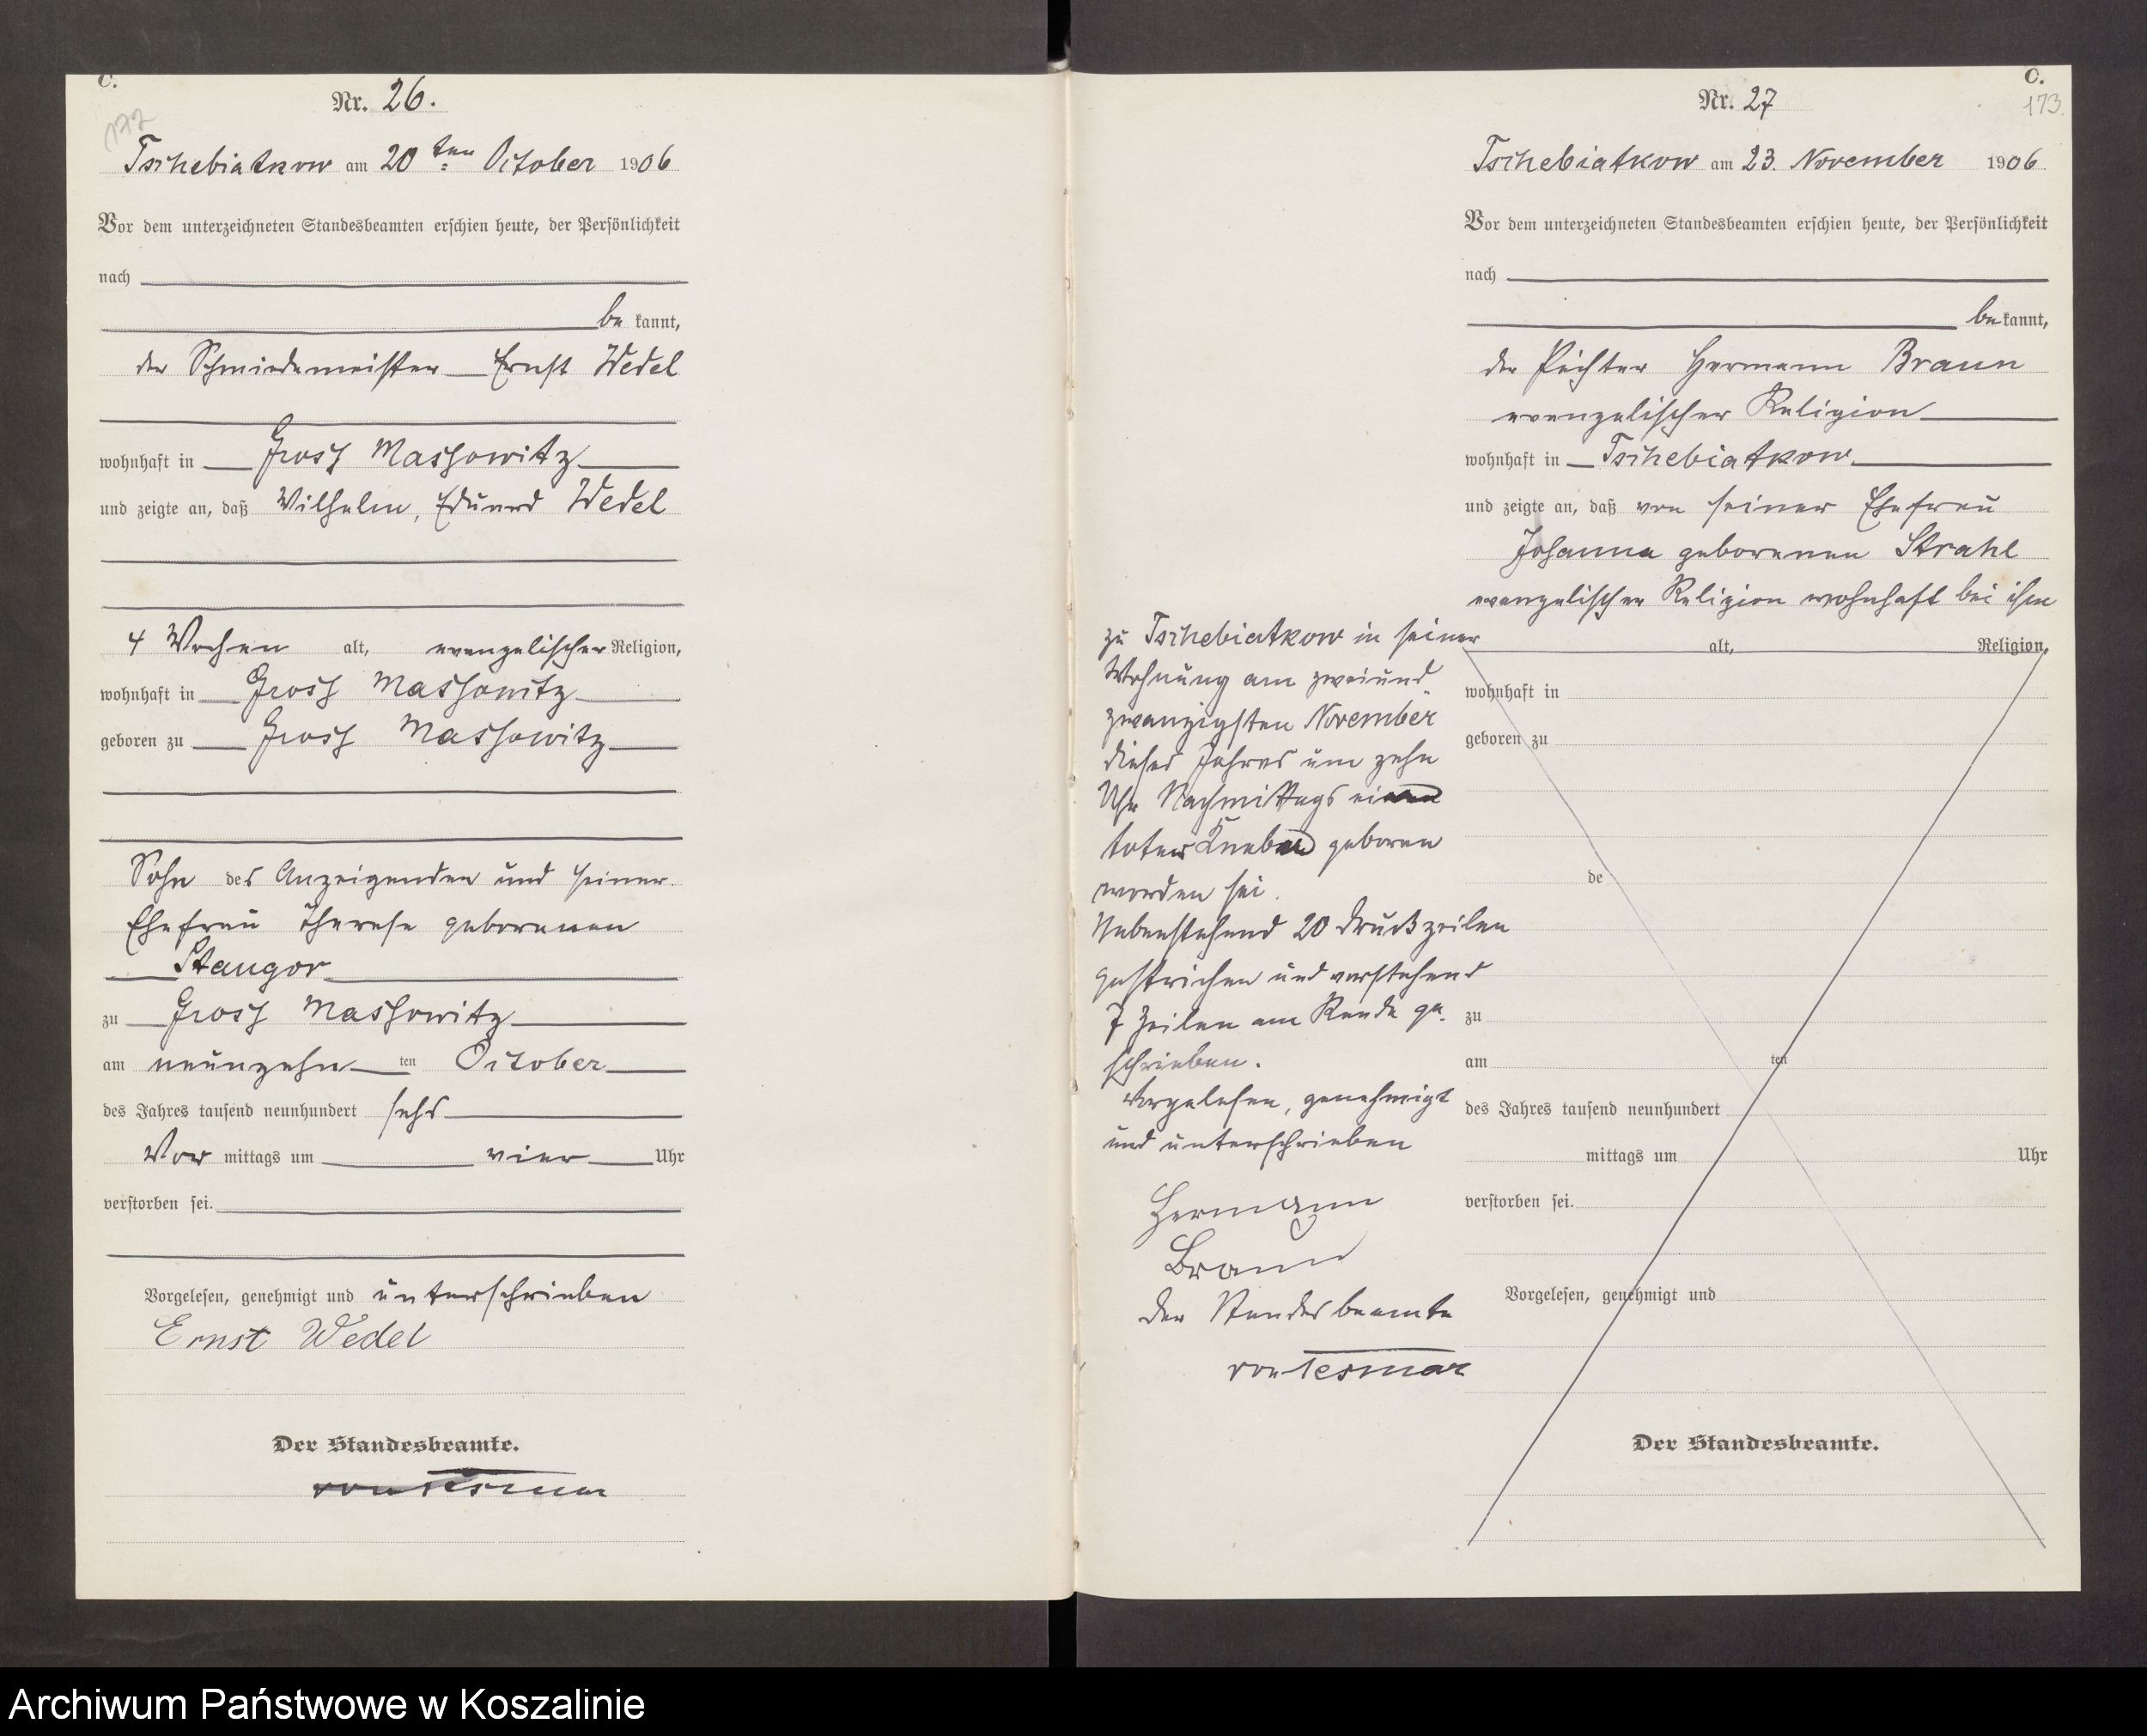 C.
172
Nr. 26.
Tschebiatkow am 20ten October 1906
Vor dem unterzeichneten Standesbeamten erschien heute, der Persönlichkeit
nach
be kannt,
der Schmiedemeister Ernst Wedel
wohnhaft in Gross Massowitz
und zeigte an, daß Wilhelm, Eduard Wedel
4 Wochen alt, evangelischer Religion,
wohnhaft in Gross Massowitz
geboren zu Gross Massowitz
Sohn des Anzeigenden und seiner
Ehefrau Therese geborenen
Stangor
zu Gross Massowitz
am neunzehn ten October
des Jahres tausend neunhundert sechs
Vor mittags um vier Uhr
verstorben sei.
Vorgelesen, genehmigt und unterschrieben
Ernst Wedel
Der Standesbeamte.
von Tesmar
C.
173
Nr. 27
Tschebiatkow am 23. November 1906
Vor dem unterzeichneten Standesbeamten erschien heute, der Persönlichkeit
nach
be kannt,
der Pächter Hermann Braun
evangelischer Religion
wohnhaft in Tschebiatkow
und zeigte an, daß von seiner Ehefrau
Johanna geborenen Strahl
evangelischer Religion wohnhaft bei ihm
zu Tschebiatkow in seiner
Wohnung am zweiund
zwanzigsten November
dieses Jahres um zehn
Uhr Nachmittags ein
toter Knabe geboren
worden sei.
Nebenstehend 20 Druckzeilen
gestrichen und vorstehend
7 Zeilen am Rande ge-
schrieben.
Vorgelesen, genehmigt
und unterschrieben
Hermann
Braun
Der Standesbeamte
von Tesmar
alt, Religion,
wohnhaft in
geboren zu
de
zu
am ten
des Jahres tausend neunhundert
mittags um Uhr
verstorben sei.
Vorgelesen, genehmigt und
Der Standesbeamte.
Archiwum Państwowe w Koszalinie